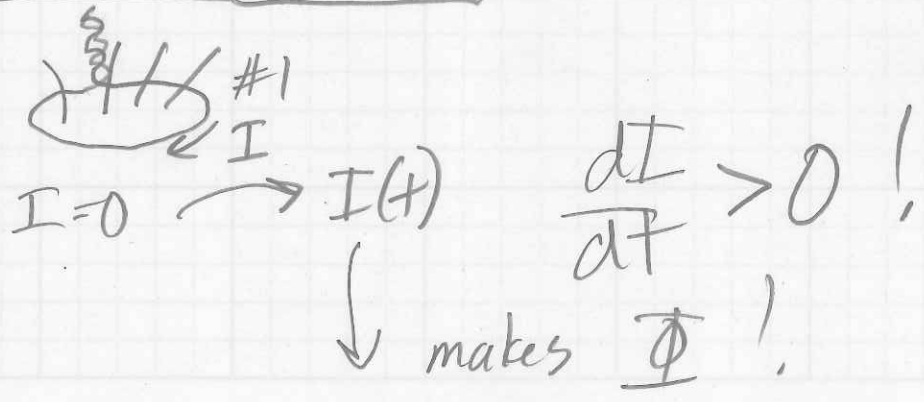 #1
I
I=0 → I(t) dI/dt > 0 !
↓ makes Φ !